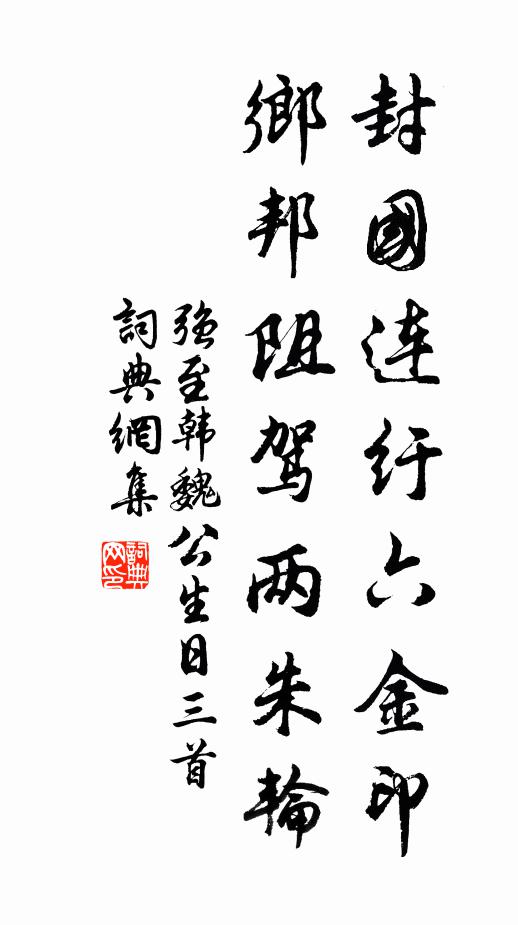 封國连纡六金印
鄉邦阻驾两朱輪
强至韩魏公生日三首
詞典網集
詞典网印